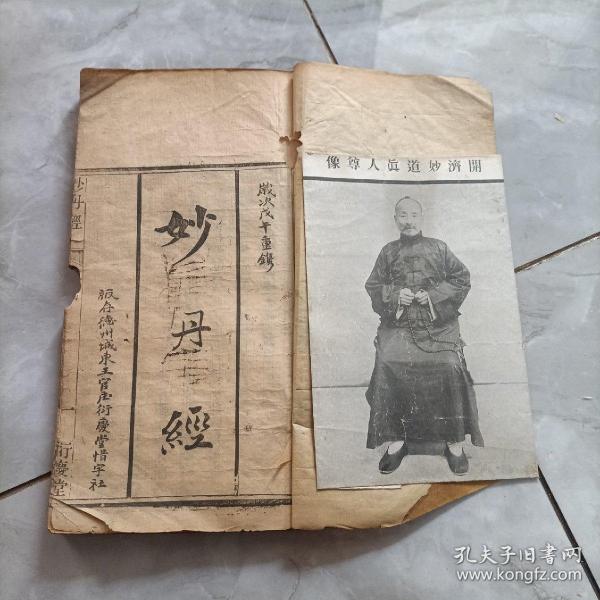 開濟妙道眞人尊像
歲次戊午重鐫
妙丹經
版存德州城東王官庄衍慶堂惜字社
妙丹經
一
衍慶堂
孔夫子旧书网
www.kongfz.com